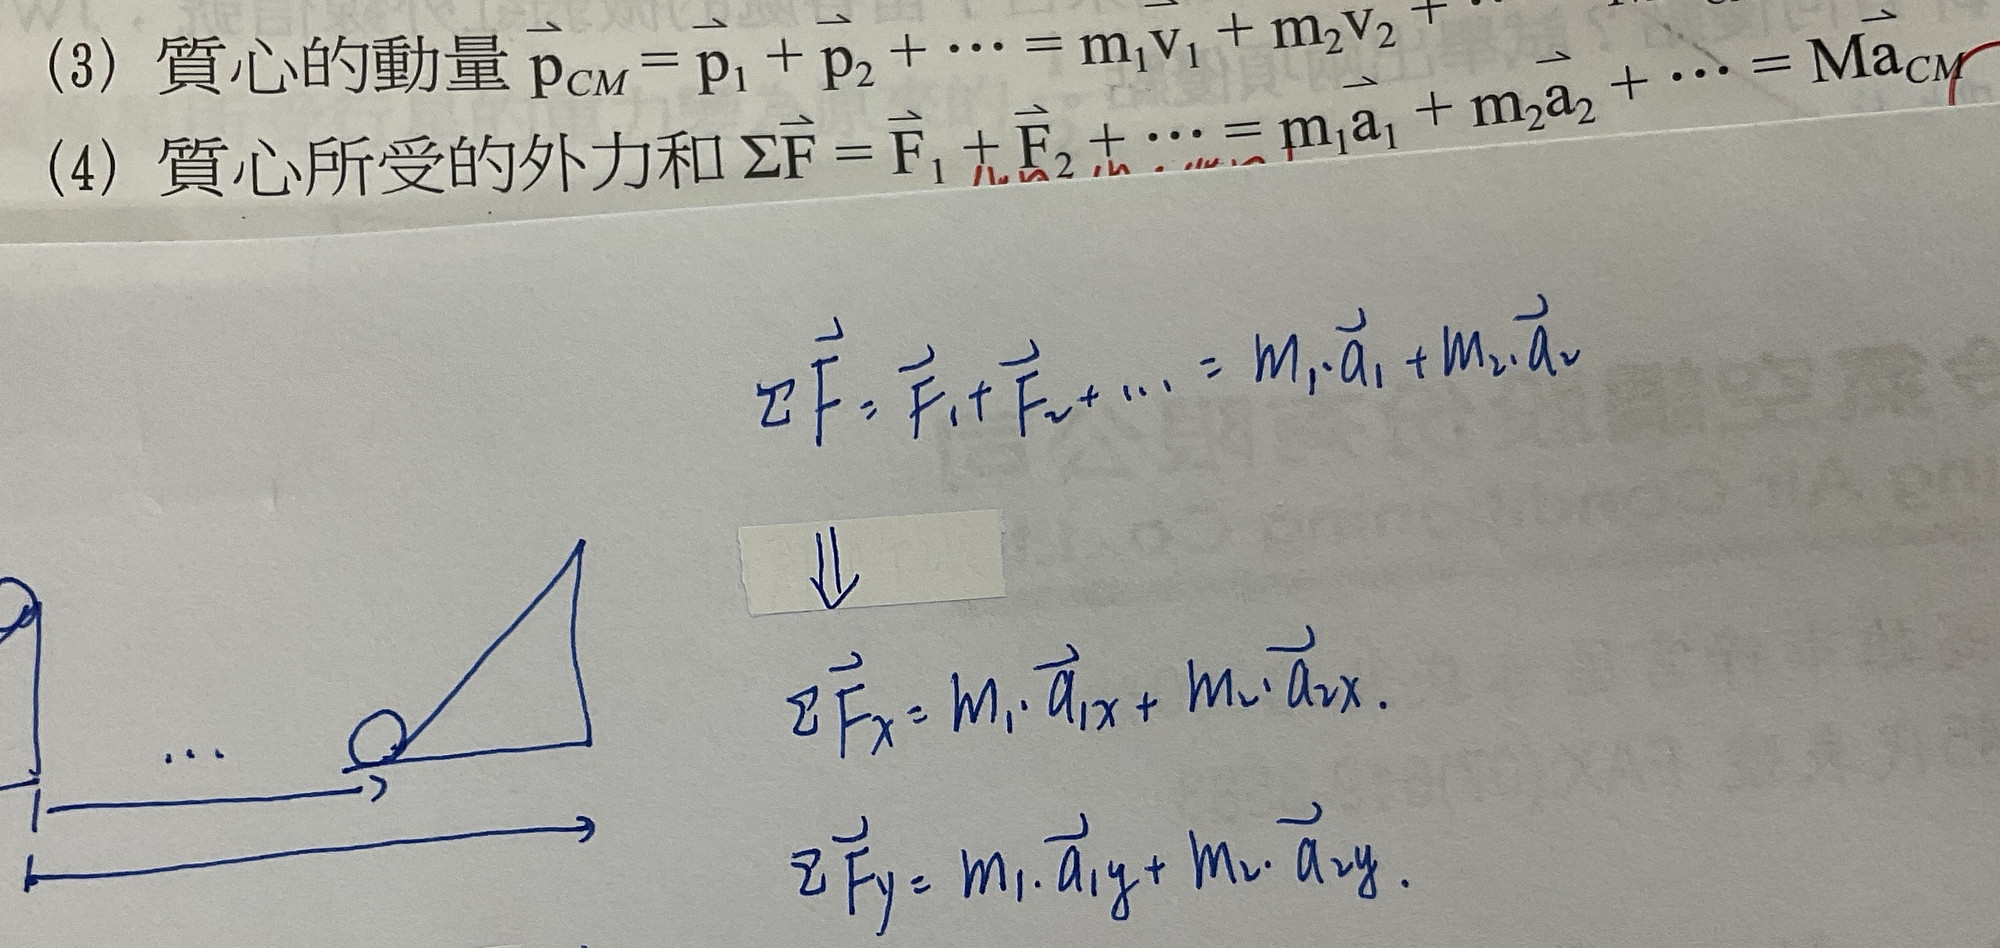 (3) 質心的動量 p⃗CM = p⃗1 + p⃗2 + ⋯ = m1v⃗1 + m2v2 +
(4) 質心所受的外力和 ΣF⃗ = F⃗1 + F⃗2 + ⋯ = m1a⃗1 + m2a⃗2 + ⋯ = Ma⃗CM
ΣF⃗ = F⃗1 + F⃗2 + ⋯ = m1·a⃗1 + m2·a⃗2
⇓
ΣF⃗x = m1·a⃗1x + m2·a⃗2x.
...
ΣF⃗y = m1·a⃗1y + m2·a⃗2y.